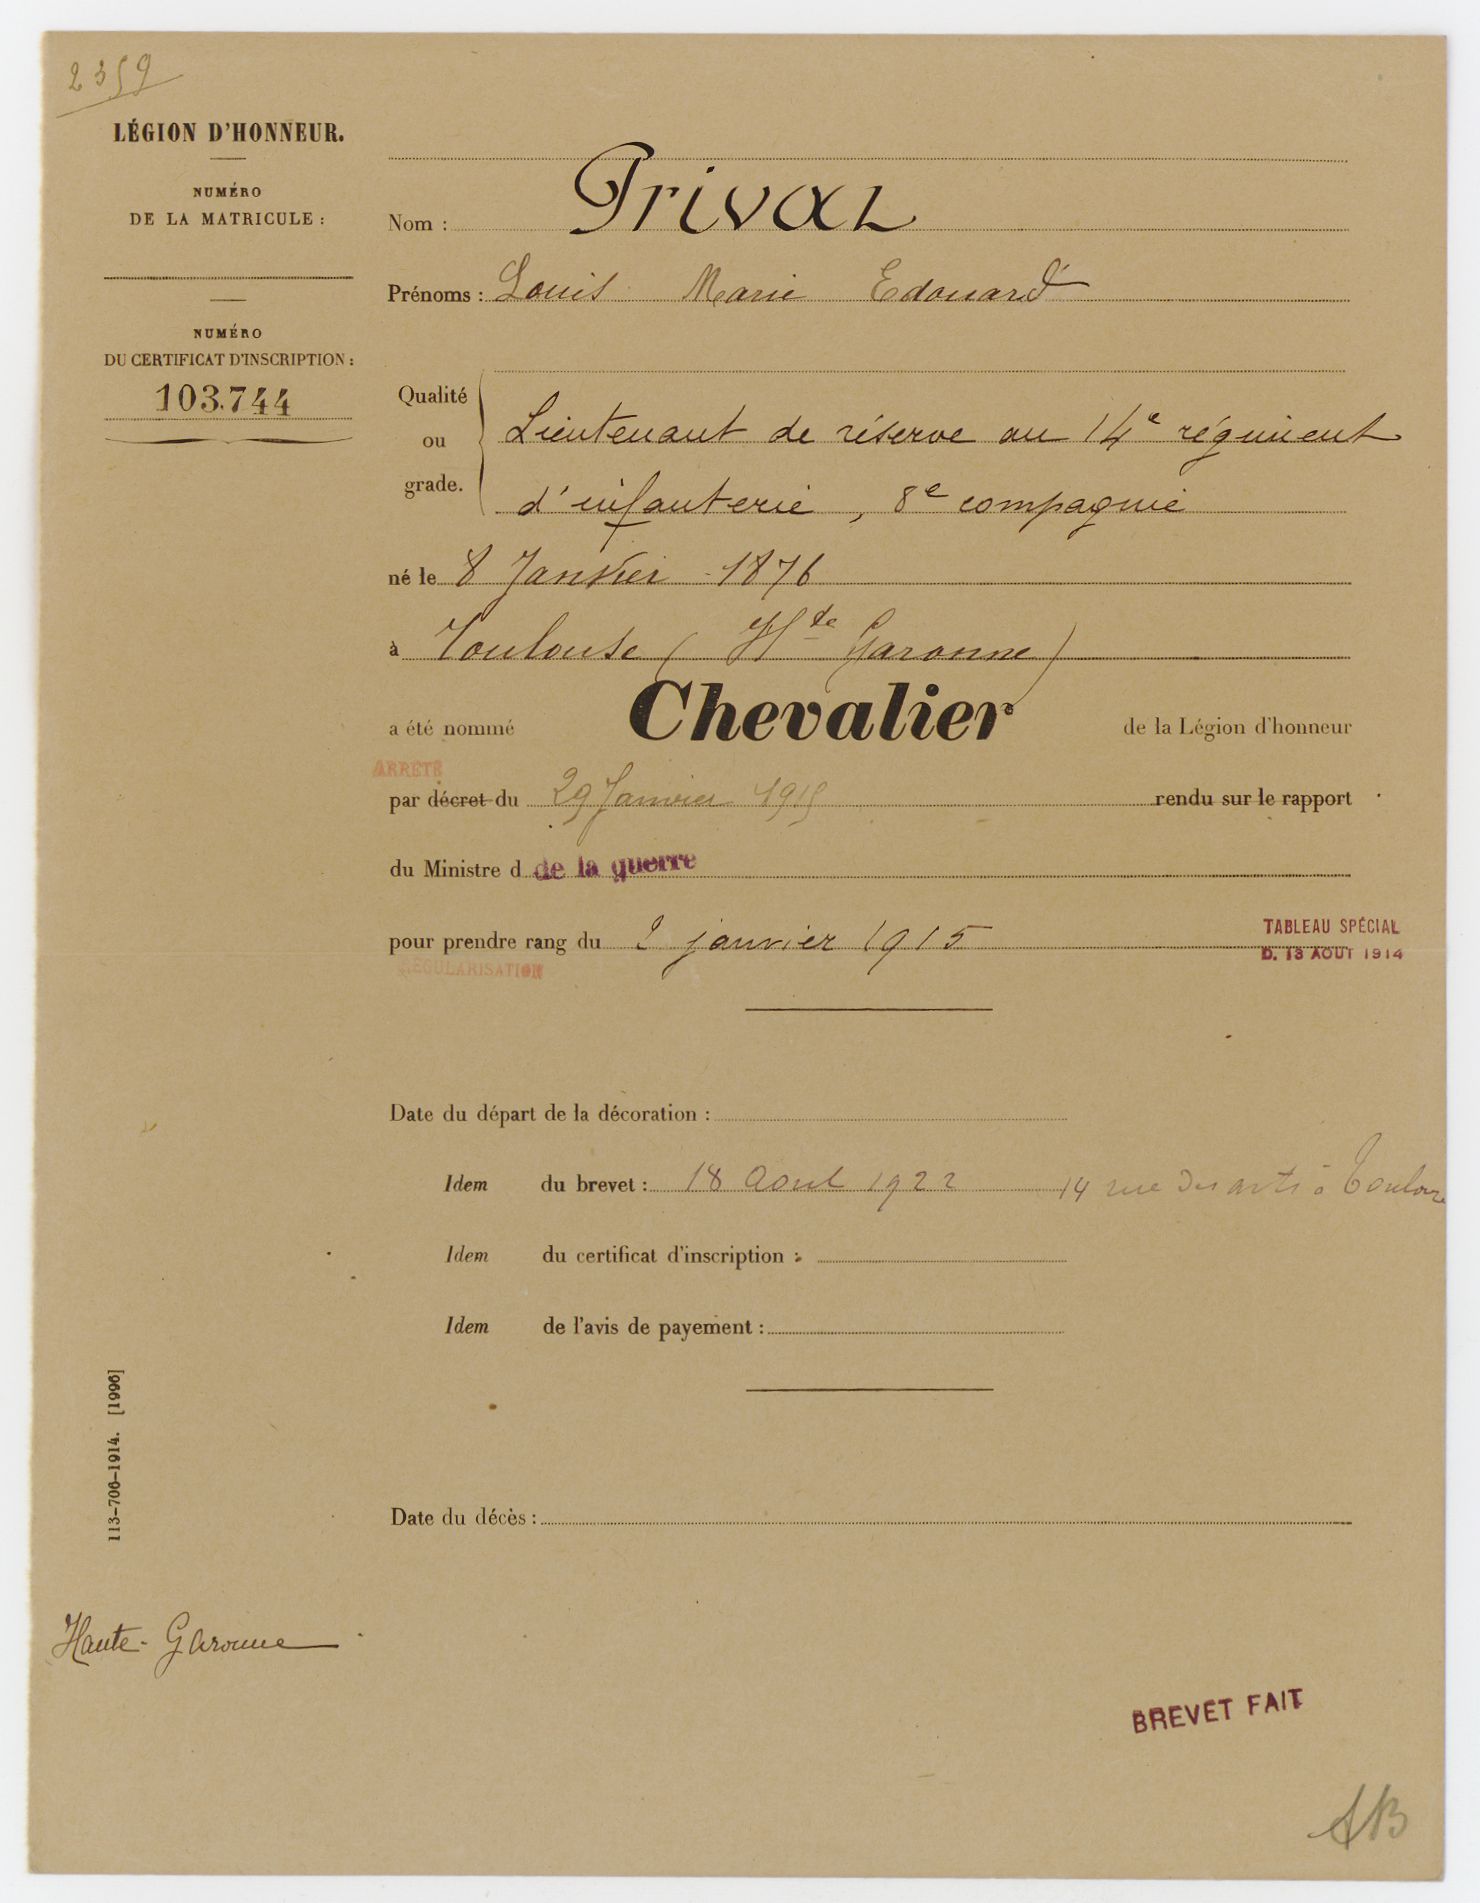 2359
LÉGION D'HONNEUR.
NUMÉRO
DE LA MATRICULE :
Nom : Prival
Prénoms : Louis Marie Edouard
NUMÉRO
DU CERTIFICAT D'INSCRIPTION :
103.744
Qualité
ou
grade.
Lieutenant de réserve au 14e régiment
d'infanterie, 8e compagnie
né le 8 Janvier 1876
à Toulouse (Hte Garonne)
a été nommé Chevalier de la Légion d'honneur
ARRÊTÉ
par décret du 29 Janvier 1915 rendu sur le rapport
du Ministre d de la guerre
pour prendre rang du 2 janvier 1915
TABLEAU SPÉCIAL
D. 13 AOUT 1914
RÉGULARISATION
Date du départ de la décoration :
Idem du brevet : 18 Aout 1922 14 rue des arts à Toulouse
Idem du certificat d'inscription :
Idem de l'avis de payement :
113-706-1914. [1996]
Date du décès :
Haute-Garonne
BREVET FAIT
AB